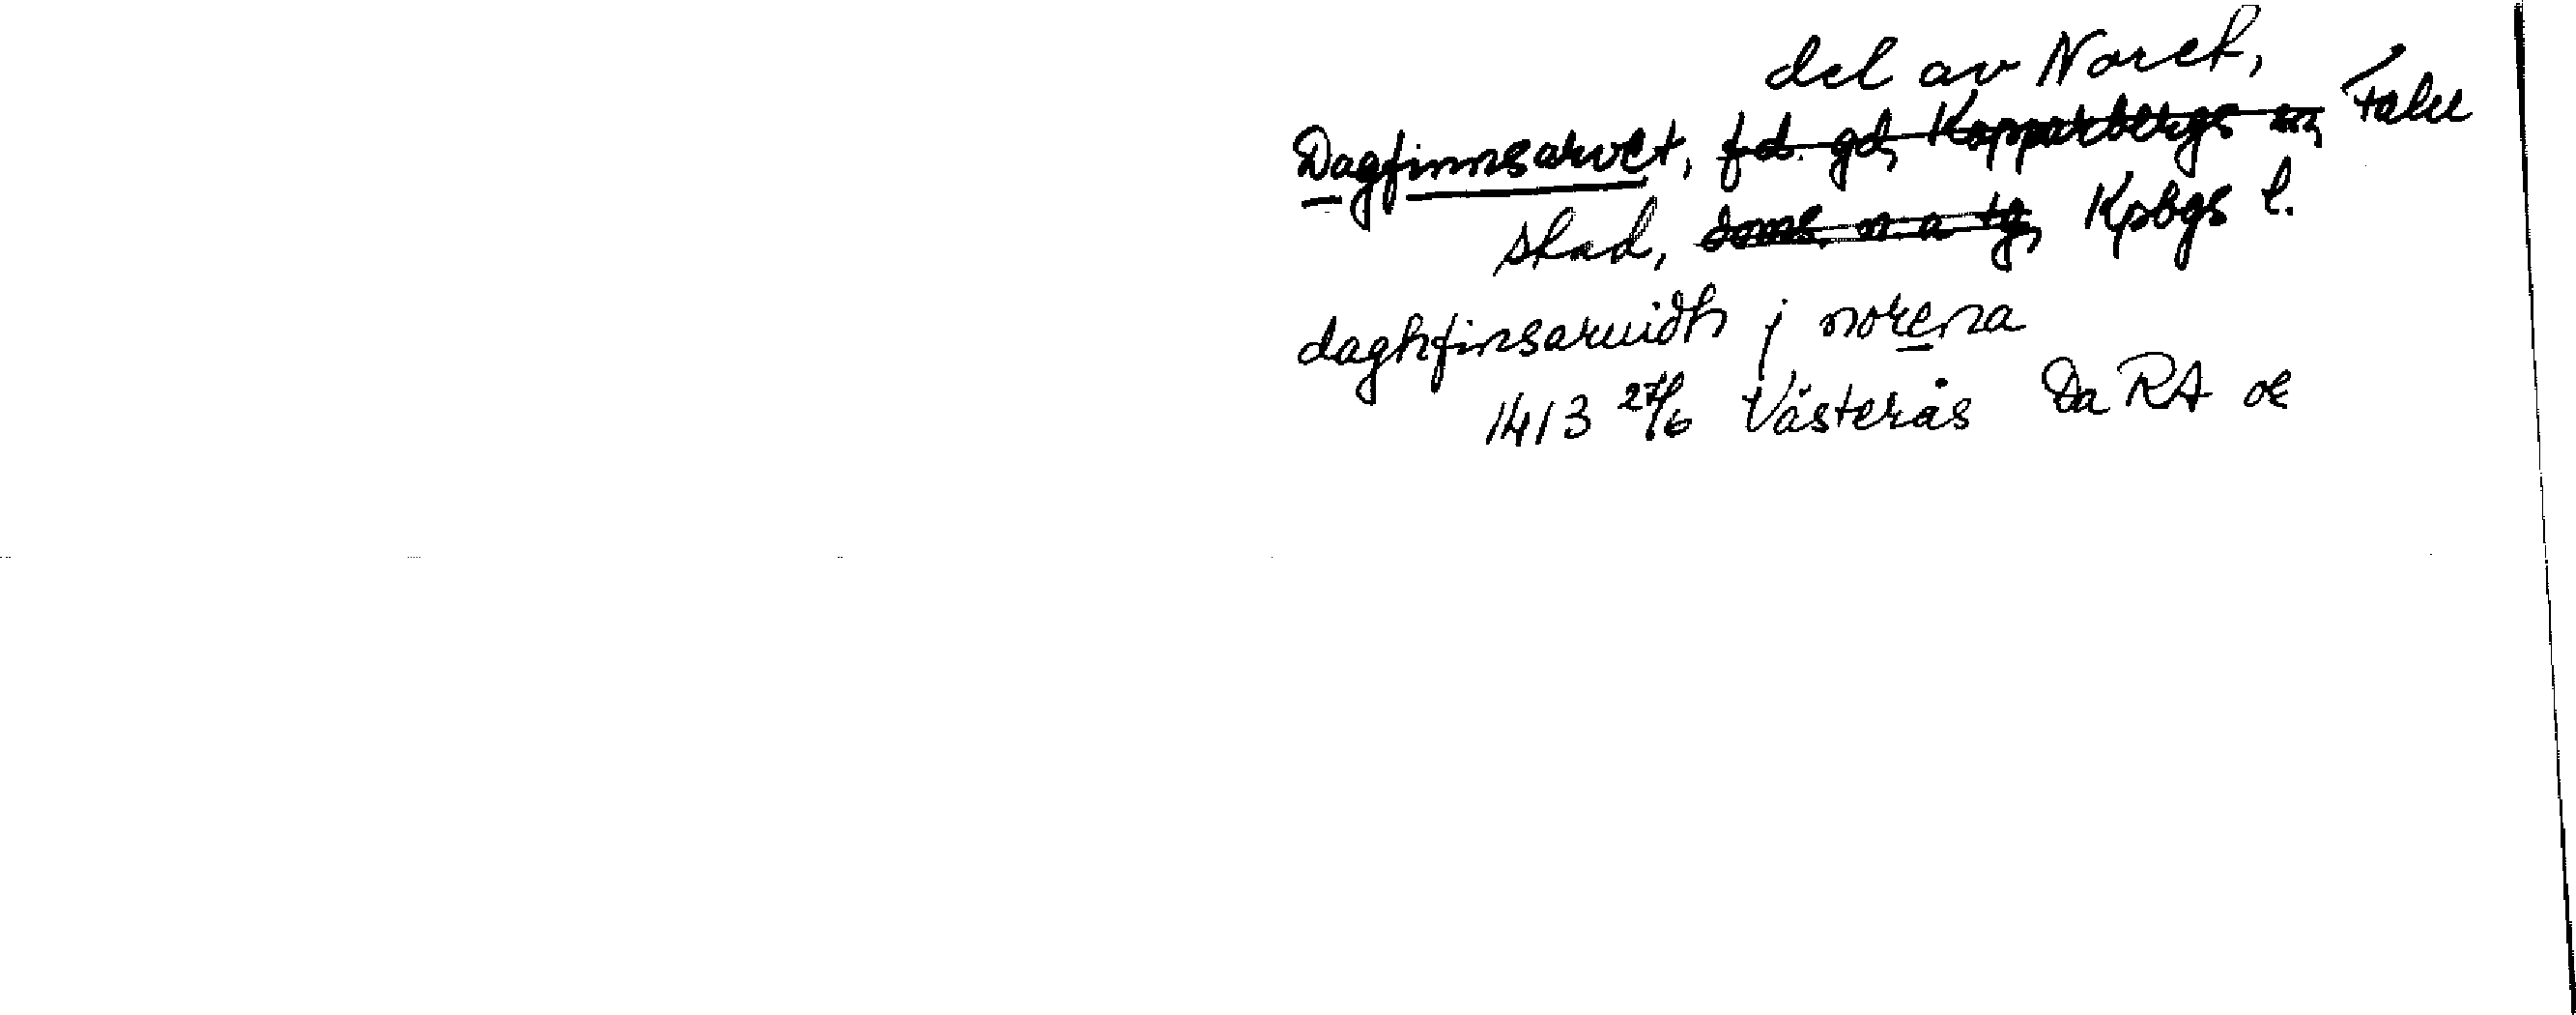 del av Noret,
Dagfinnsarvet, f.d. gd, Kopparbergs sn, Falu
stad, doms. n. a tg, Kpbgs l.
daghfinsaruidh j norena
1413 27/6 Västerås Da RA or